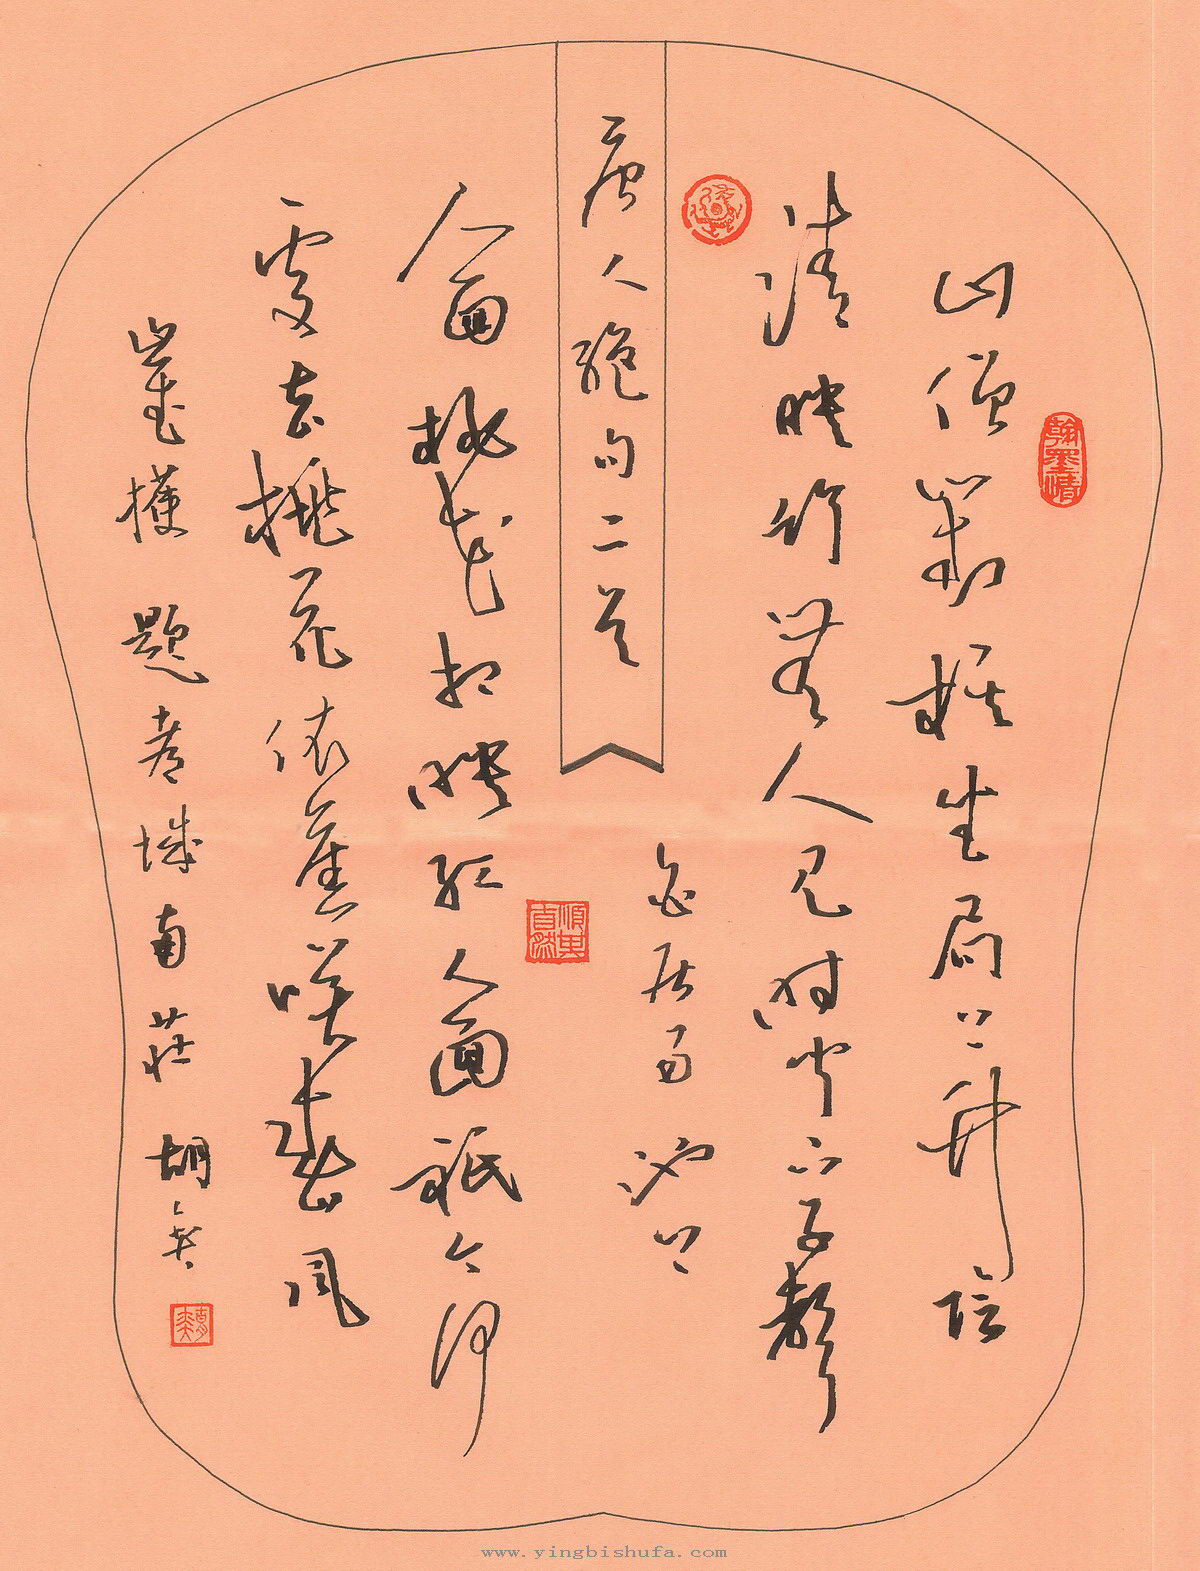 唐人絕句二首
山僧對棋坐局上竹陰
清映竹無人見時聞下子聲
白居易 池上
人面桃花相映紅人面祇今何
處去桃花依舊笑春風
崔護 題都城南莊 胡奕
翰墨情
順其自然
www.yingbishufa.com